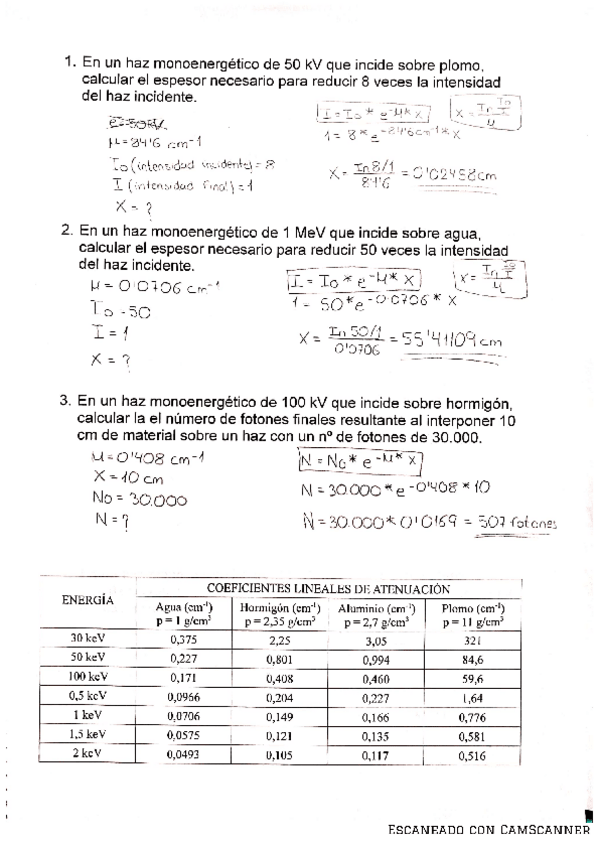 1. En un haz monoenergético de 50 kV que incide sobre plomo,
calcular el espesor necesario para reducir 8 veces la intensidad
del haz incidente.
E=50KV
μ=84'6 cm-1
Io (intensidad incidente)=8
I (intensidad final)=1
X = ?
I = Io * e-μ* X
X = In Io/I / μ
1 = 8*e-84'6cm-1* X
X = In 8/1 / 84'6 = 0'02458cm
2. En un haz monoenergético de 1 MeV que incide sobre agua,
calcular el espesor necesario para reducir 50 veces la intensidad
del haz incidente.
μ = 0'0706 cm-1
Io = 50
I = 1
X = ?
I = Io * e-μ* X
X = In Io/I / μ
1 = 50*e-0'0706* X
X = In 50/1 / 0'0706 = 55'41109 cm
3. En un haz monoenergético de 100 kV que incide sobre hormigón,
calcular la el número de fotones finales resultante al interponer 10
cm de material sobre un haz con un nº de fotones de 30.000.
μ=0'408 cm-1
X = 10 cm
No = 30.000
N = ?
N = No* e-μ* X
N = 30.000*e-0'408*10
N = 30.000*0'0169 = 507 fotones
ENERGÍA COEFICIENTES LINEALES DE ATENUACIÓN
Agua (cm-1) Hormigón (cm-1) Aluminio (cm-1) Plomo (cm-1)
p = 1 g/cm3 p = 2,35 g/cm3 p = 2,7 g/cm3 p = 11 g/cm3
30 keV 0,375 2,25 3,05 321
50 keV 0,227 0,801 0,994 84,6
100 keV 0,171 0,408 0,460 59,6
0,5 keV 0,0966 0,204 0,227 1,64
1 keV 0,0706 0,149 0,166 0,776
1,5 keV 0,0575 0,121 0,135 0,581
2 keV 0,0493 0,105 0,117 0,516
ESCANEADO CON CAMSCANNER